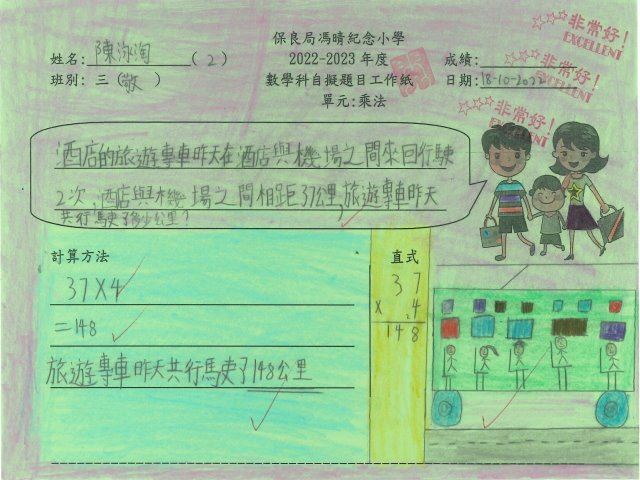 保良局馮晴紀念小學
姓名：陳泳淘（2）
2022-2023 年度
成績：
班別：三（敬）
數學科自擬題目工作紙
日期：18-10-2022
單元：乘法
☆☆☆非常好！
EXCELLENT
☆☆☆非常好！
EXCELLENT
☆☆☆非常好！
EXCELLENT
酒店的旅遊專車昨天在酒店與機場之間來回行駛
2次，酒店與機場之間相距37公里，旅遊專車昨天
共行駛了多少公里？
計算方法
37×4
=148
旅遊專車昨天共行駛了148公里
直式
37
× 4
148